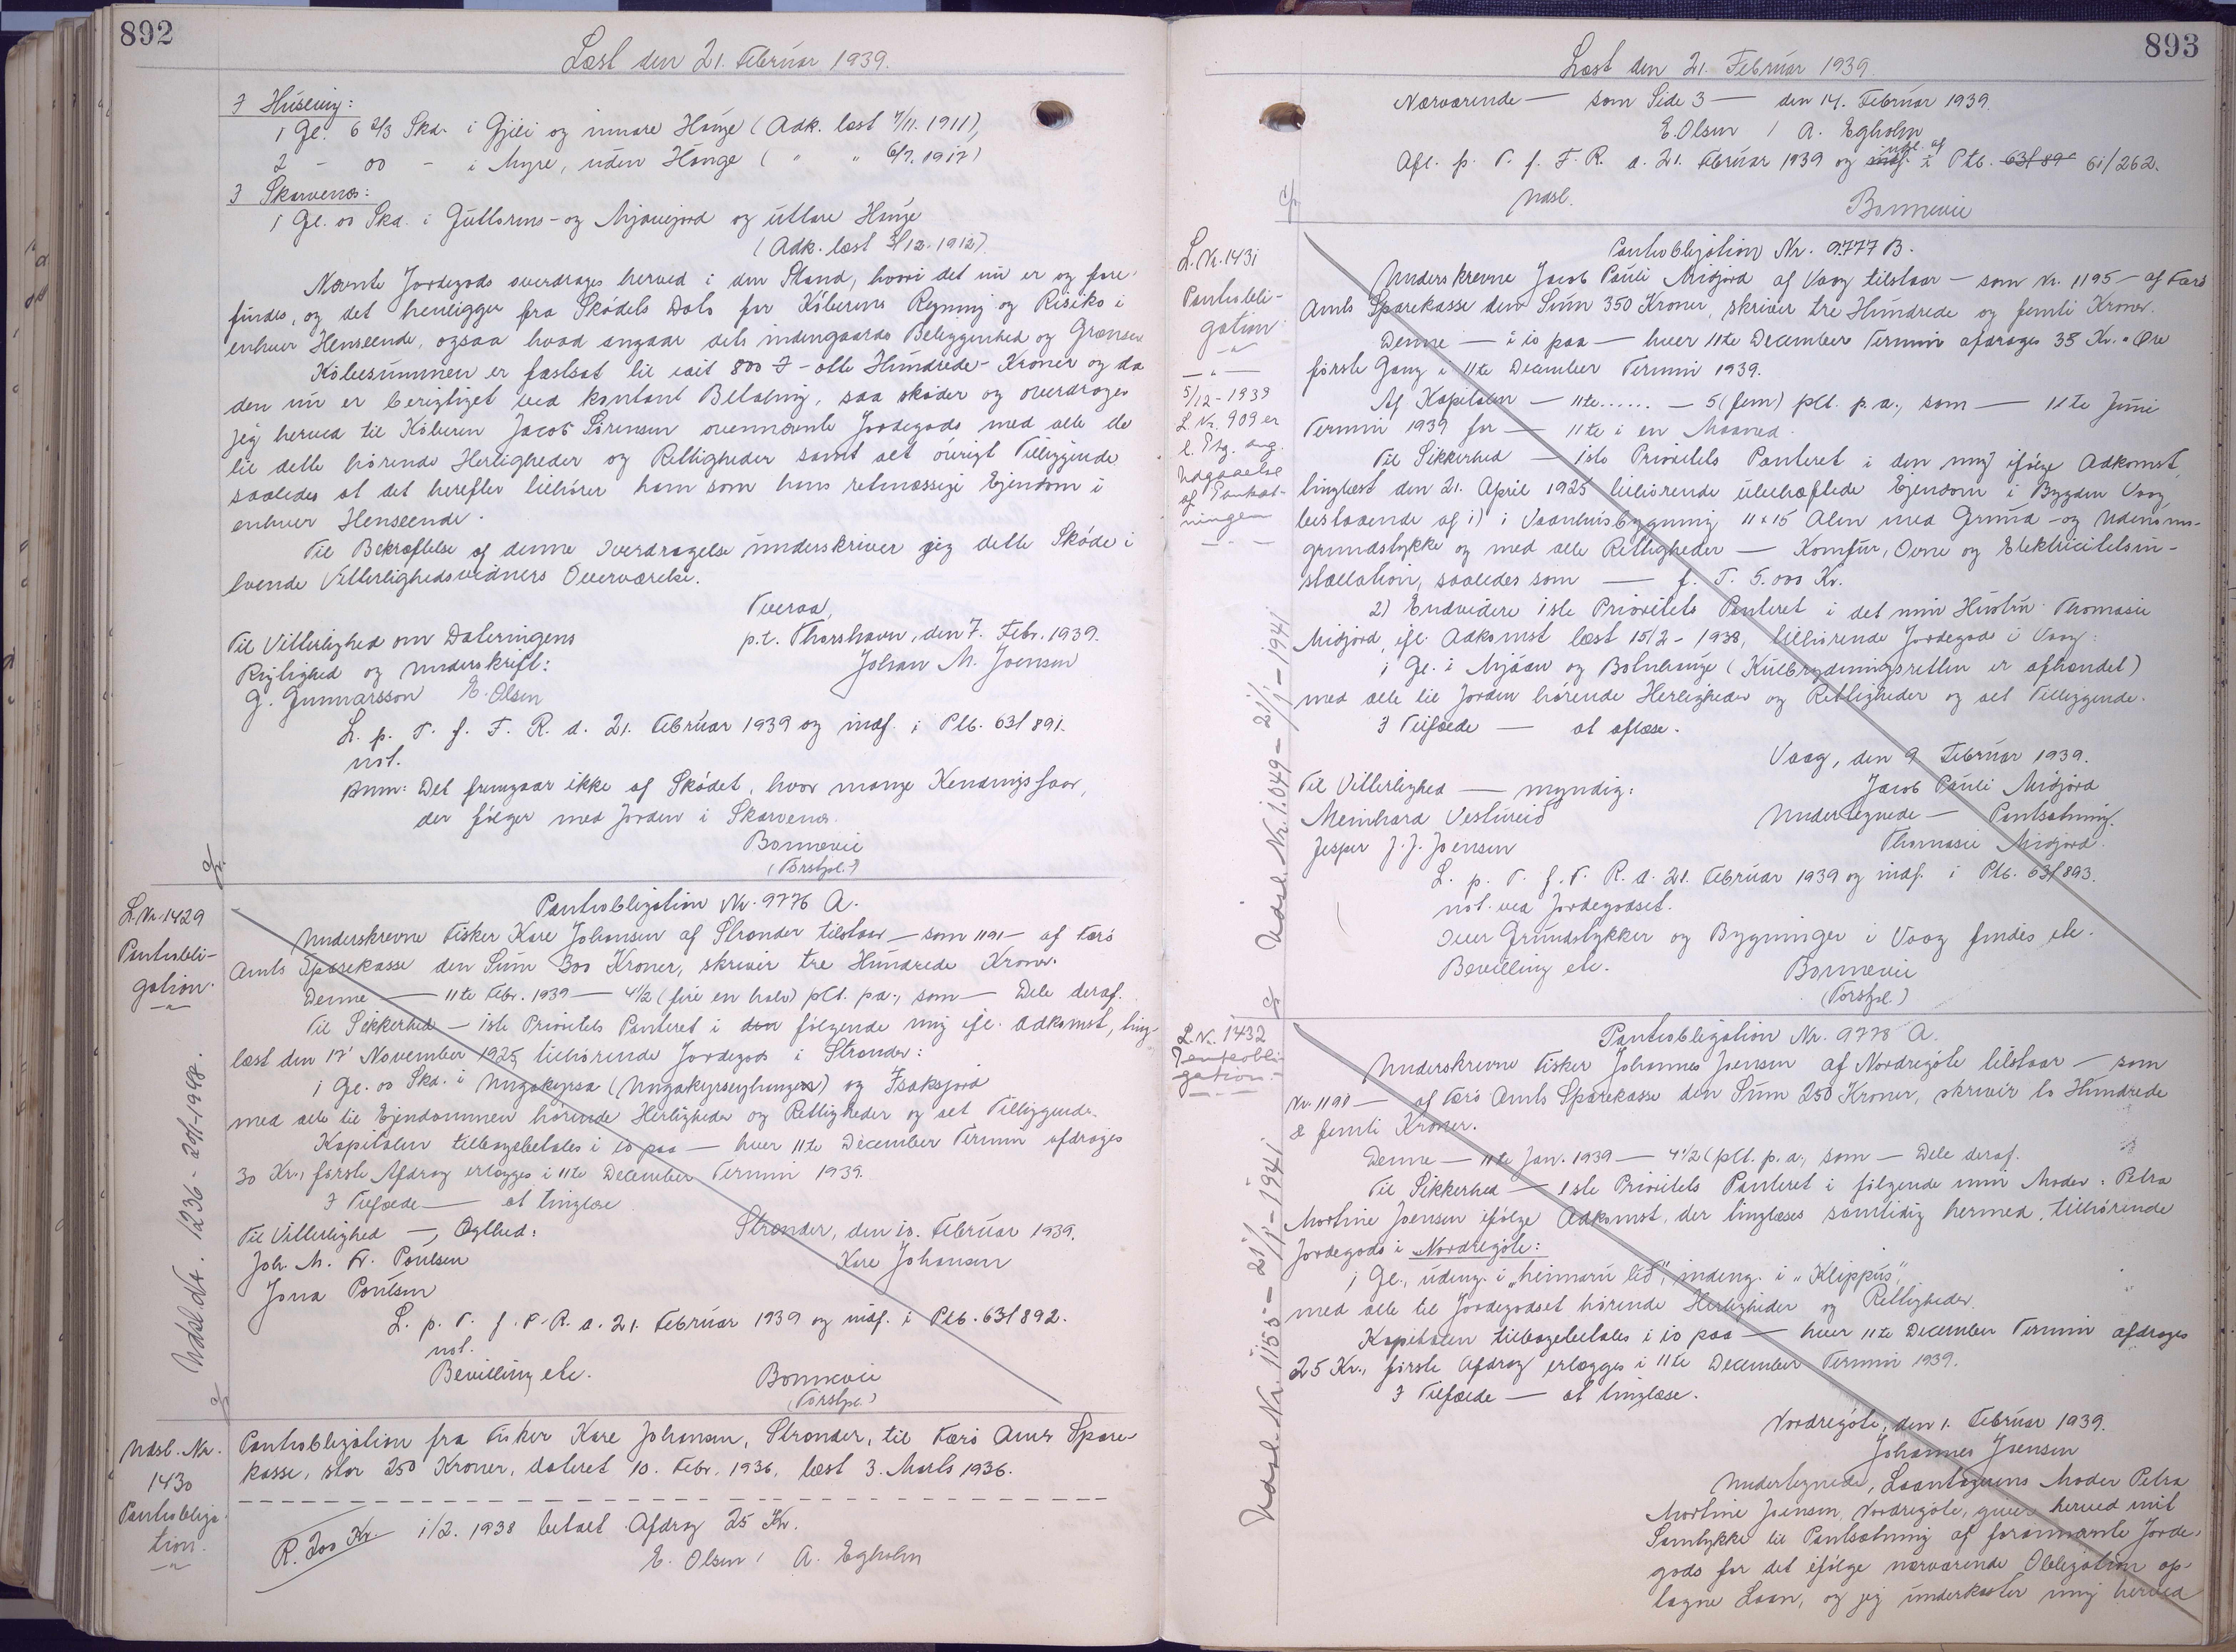 892
Læst den 21. Februar 1939.
I Húseviy:
1 Gl. 6 2/3 Skd. i Gjili og innare Hauge (Adk. læst 7/11. 1911),
2 - 00 - i Myre, uden Hauge ( " " 6/7. 1917)
I Skarvenes:
1 Gl. 00 Skd. i Guttorms- og Mjáuejord og uttare Hauge
(Adk. læst 3/12. 1912).
Nævnte Jordegods overdrages herved i den Stand, hvori det nu er og fore-
findes, og det henligger fra Skødets Dato for Køberens Regning og Risiko i
enhver Henseende, ogsaa hvad angaar dets indengaards Beliggenhed og Grænser
Købesummen er fastsat til ialt 800 - otte Hundrede - Kroner og da
den nu er berigtiget ved kontant Betaling, saa skøder og overdrager
jeg herved til Køberen Jacob Sørensen ovennævnte Jordegods med alle de
til dette hørende Herligheder og Rettigheder samt alt øvrigt Tilliggende
saaledes at det herefter tilhører ham som hans retmæssige Ejendom i
enhver Henseende.
Til Bekræftelse af denne Overdragelse underskriver jeg dette Skøde i
tvende Vitterlighedsvidners Overværelse.
Tveraa,
Til Vitterlighed om Dateringens
p.t. Thorshavn, den 7. Febr. 1939.
Rigtighed og Underskrift:
Johan M. Joensen
G. Gunnarsson E. Olsen
L. p. T. f. F. R. d. 21. Februar 1939 og indf. i Ptb. 63/891.
not.
Anm: Det fremgaar ikke af Skødet, hvor mange Kendingsfaar,
der følger med Jorden i Skarvenes.
Bonnevie
(Forstpl.)
L. Nr. 1429
Pantobli-
gation.
Udsl. d. Nr. 1236 - 20/1-1948.
Pantobligation Nr. 9776 A.
Underskrevne Fisker Kare Johansen af Strender tilstaar — som 1191 — af Færø
Amts Sparekasse den Sum 300 Kroner, skriver tre Hundrede Kroner.
Denne — 11te Febr. 1939 — 4 1/2 (fire en halv) pCt. p.a., som — Dele deraf.
Til Sikkerhed — 1ste Prioritets Panteret i den følgende mig ifl. Adkomst, ting-
læst den 17' November 1925, tilhørende Jordegods i Strender:
1 Gl. 00 Skd. i Mugakyrsa (Mugakyrseyhungen) og Isaksjord
med alle til Ejendommen hørende Herligheder og Rettigheder og alt Tilliggende.
Kapitalen tilbagebetales i io paa — hver 11te December Termin afdrages
30 Kr., første Afdrag erlægges i 11te December Termin 1939.
I Tilfælde — at tinglæse.
Til Vitterlighed —, Ægthed:
Strender, den 10. Februar 1939.
Joh. M. Fr. Poulsen
Kare Johansen
Jona Poulsen
L. p. T. f. F. R. d. 21. Februar 1939 og indf. i Ptb. 63/892.
not.
Bevilling etc.
Bonnevie
(Forstpl.)
Udsl. Nr.
1430
Pantobliga-
tion.
Pantobligation fra Fisker Kare Johansen, Strender, til Færø Amts Spare-
kasse, stor 250 Kroner, dateret 10. Febr. 1936, læst 3. Marts 1936.
R. 200 Kr.
1/2. 1938 betalt Afdrag 25 Kr.
E. Olsen / A. Egholm
893
Læst den 21. Februar 1939.
Nærværende — som Side 3 — den 14. Februar 1939.
E. Olsen / A. Egholm
Afl. p. T. f. F. R. d. 21. Februar 1939 og indf. i udsl. af Ptb. 63/89 61/262.
Udsl.
Bonnevie
L. Nr. 1431
Pantobli-
gation
5/12 - 1939
L. Nr. 909 er
l. Ptg. ang.
Udgaaelse
af Pantsæt-
ningen
Udsl. Nr. 1.049 - 21/1 - 1941
Pantobligation Nr. 9777 B.
Underskrevne Jacob Pauli Midjord af Vaag tilstaar — som Nr. 1195 — af Færø
Amts Sparekasse den Sum 350 Kroner, skriver tre Hundrede og femti Kroner.
Denne — i io paa — hver 11te December Termin afdrages 35 Kr. " Øre
første Gang i 11te December Termin 1939.
Af Kapitalen — 11te...... — 5 (fem) pCt. p.a., som — 11te Juni
Termin 1939 for — 11te i en Maaned.
Til Sikkerhed — 1ste Prioritets Panteret i den mig ifølge Adkomst,
tinglæst den 21. April 1925 tilhørende ubehæftede Ejendom i Bygden Vaag,
bestaaende af 1) i Vaanhusbygning 11 x 15 Alen med Grund- og Udenoms-
grundstykke og med alle Rettigheder — Komfur, Ovne og Elektricitetsin-
stallation, saaledes som — f. T. 5.000 Kr.
2) Endvidere 1ste Prioritets Panteret i det min Hustru Thomasie
Midjord, ifl. Adkomst læst 15/2 - 1938, tilhørende Jordegods i Vaag:
1 Gl. i Mjáav og Bolnhauge (Kulbrydningsretten er afhændet)
med alle til Jorden hørende Herligheder og Rettigheder og alt Tilliggende.
I Tilfælde — at aflæse.
Vaag, den 9 Februar 1939.
Til Vitterlighed — myndig:
Jacob Pauli Midjord
Meinhard Vestureið
Undertegnede — Pantsætning.
Jesper J. J. Joensen
Thomasie Midjord.
L. p. T. f. F. R. d. 21. Februar 1939 og indf. i Ptb. 63/893.
not. ved Jordegodset.
Over Grundstykker og Bygninger i Vaag findes etc.
Bevilling etc.
Bonnevie
(Forstpl.)
L. Nr. 1432
Pantobli-
gation.
Udsl. Nr. 1155 - 21/1 - 1941.
Pantobligation Nr. 9778 A.
Underskrevne Fisker Johannes Joensen af Nordregøte tilstaar — som
Nr. 1190 — af Færø Amts Sparekasse den Sum 250 Kroner, skriver to Hundrede
& femti Kroner.
Denne — 11te Jan. 1939 — 4 1/2 (pCt. p.a., som — Dele deraf.
Til Sikkerhed — 1ste Prioritets Panteret i følgende min Moder: Petra
Mortine Joensen ifølge Adkomst, der tinglæses samtidig hermed, tilhørende
Jordegods i Nordregøte:
1 Gl., udeng. i „heimaru lið", indeng. i „Klippus",
med alle til Jordegodset hørende Herligheder og Rettigheder.
Kapitalen tilbagebetales i io paa — hver 11te December Termin afdrages
25 Kr., første Afdrag erlægges i 11te December Termin 1939.
I Tilfælde — at tinglæse.
Nordregøte, den 1. Februar 1939.
Johannes Joensen
Undertegnede, Laantagerens Moder Petra
Mortine Joensen, Nordregøte, giver herved mit
Samtykke til Pantsætning af forannævnte Jorde-
gods for det ifølge nærværende Obligation op-
tagne Laan, og jeg underkaster mig herved